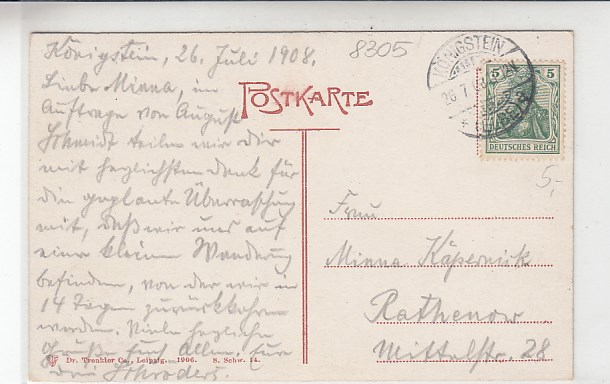 Königstein, 26. Juli 1908.
Liebe Minna, im
Auftrage von August
Schmidt teilen wir Dir
mit herzlichstem Dank für
die geplante Überraschung
mit, daß wir uns auf
einer kleinen Wanderung
befinden, von der wir in
14 Tagen zurückkehren
werden. Viele herzliche
Grüße Euch Allen. Eure
drei Schröders.
Dr. Trenkler Co., Leipzig. 1906. S. Schw. 14.
8305
POSTKARTE
KÖNIGSTEIN
26 7 08
(ELBE)
5 5
DEUTSCHES REICH
5,-
Frau
Minna Käpernick
Rathenow
Mittelstr. 28